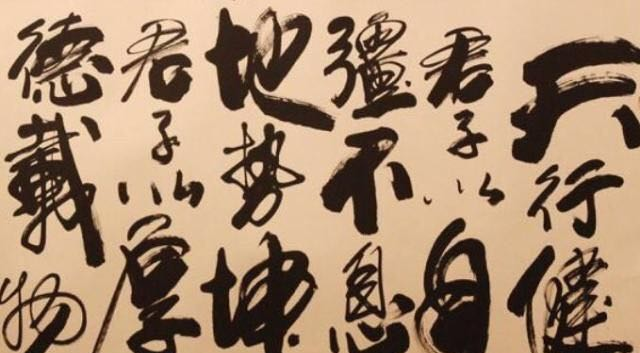 天行健
君子以自
彊不息
地势坤
君子以厚
德载物